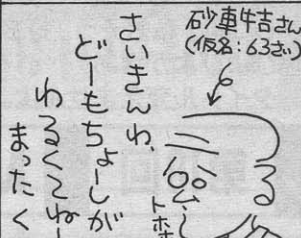 砂車牛吉さん
(仮名：63さい)
さいきんわ、
どーもちょーしが
わるくてねー
まったく